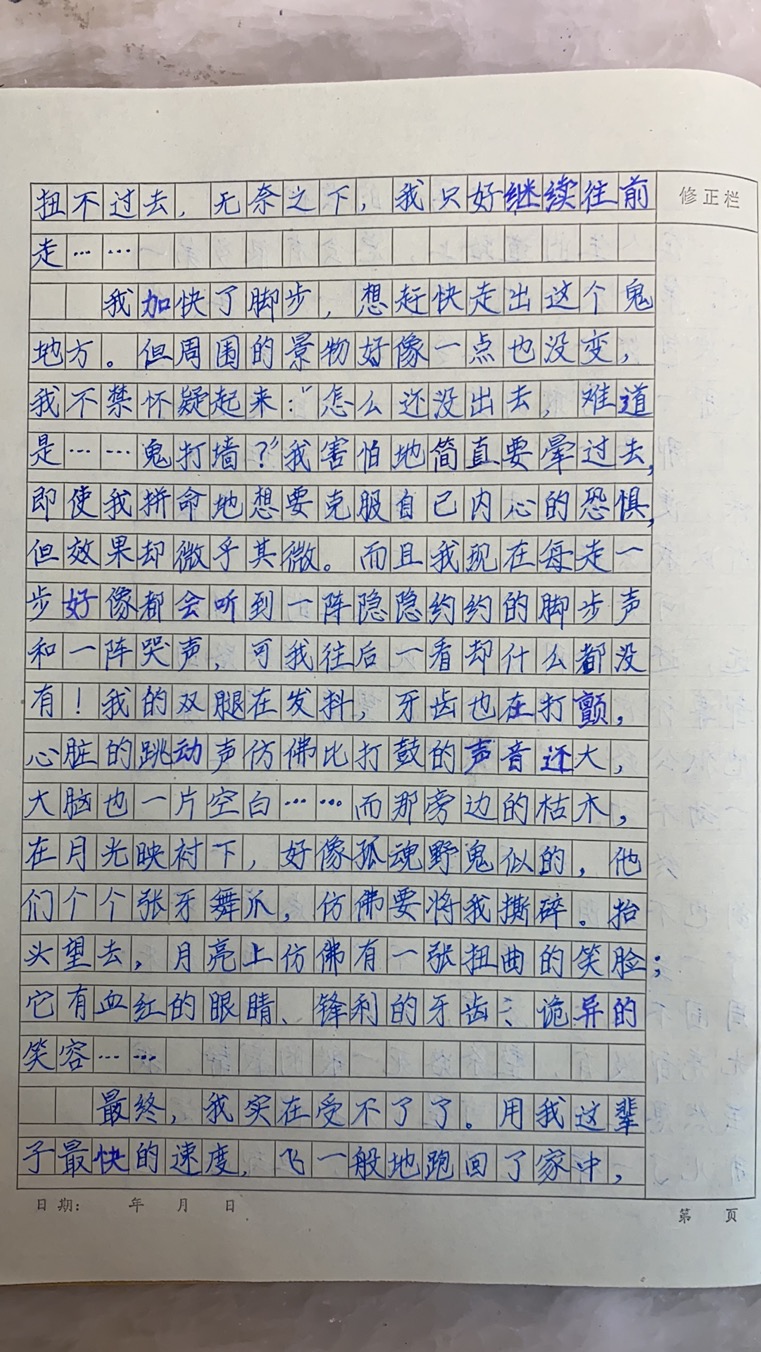 扭不过去，无奈之下，我只好继续往前
修正栏
走……
我加快了脚步，想赶快走出这个鬼
地方。但周围的景物好像一点也没变，
我不禁怀疑起来：“怎么还没出去，难道
是……鬼打墙？”我害怕地简直要晕过去，
即使我拼命地想要克服自己内心的恐惧，
但效果却微乎其微。而且我现在每走一
步好像都会听到一阵隐隐约约的脚步声
和一阵哭声，可我往后一看却什么都没
有！我的双腿在发抖，牙齿也在打颤，
心脏的跳动声仿佛比打鼓的声音还大，
大脑也一片空白……而那旁边的枯木，
在月光映衬下，好像孤魂野鬼似的，他
们个个张牙舞爪，仿佛要将我撕碎。抬
头望去，月亮上仿佛有一张扭曲的笑脸；
它有血红的眼睛、锋利的牙齿、诡异的
笑容……
最终，我实在受不了了。用我这辈
子最快的速度，飞一般地跑回了家中，
日期： 年 月 日
第 页